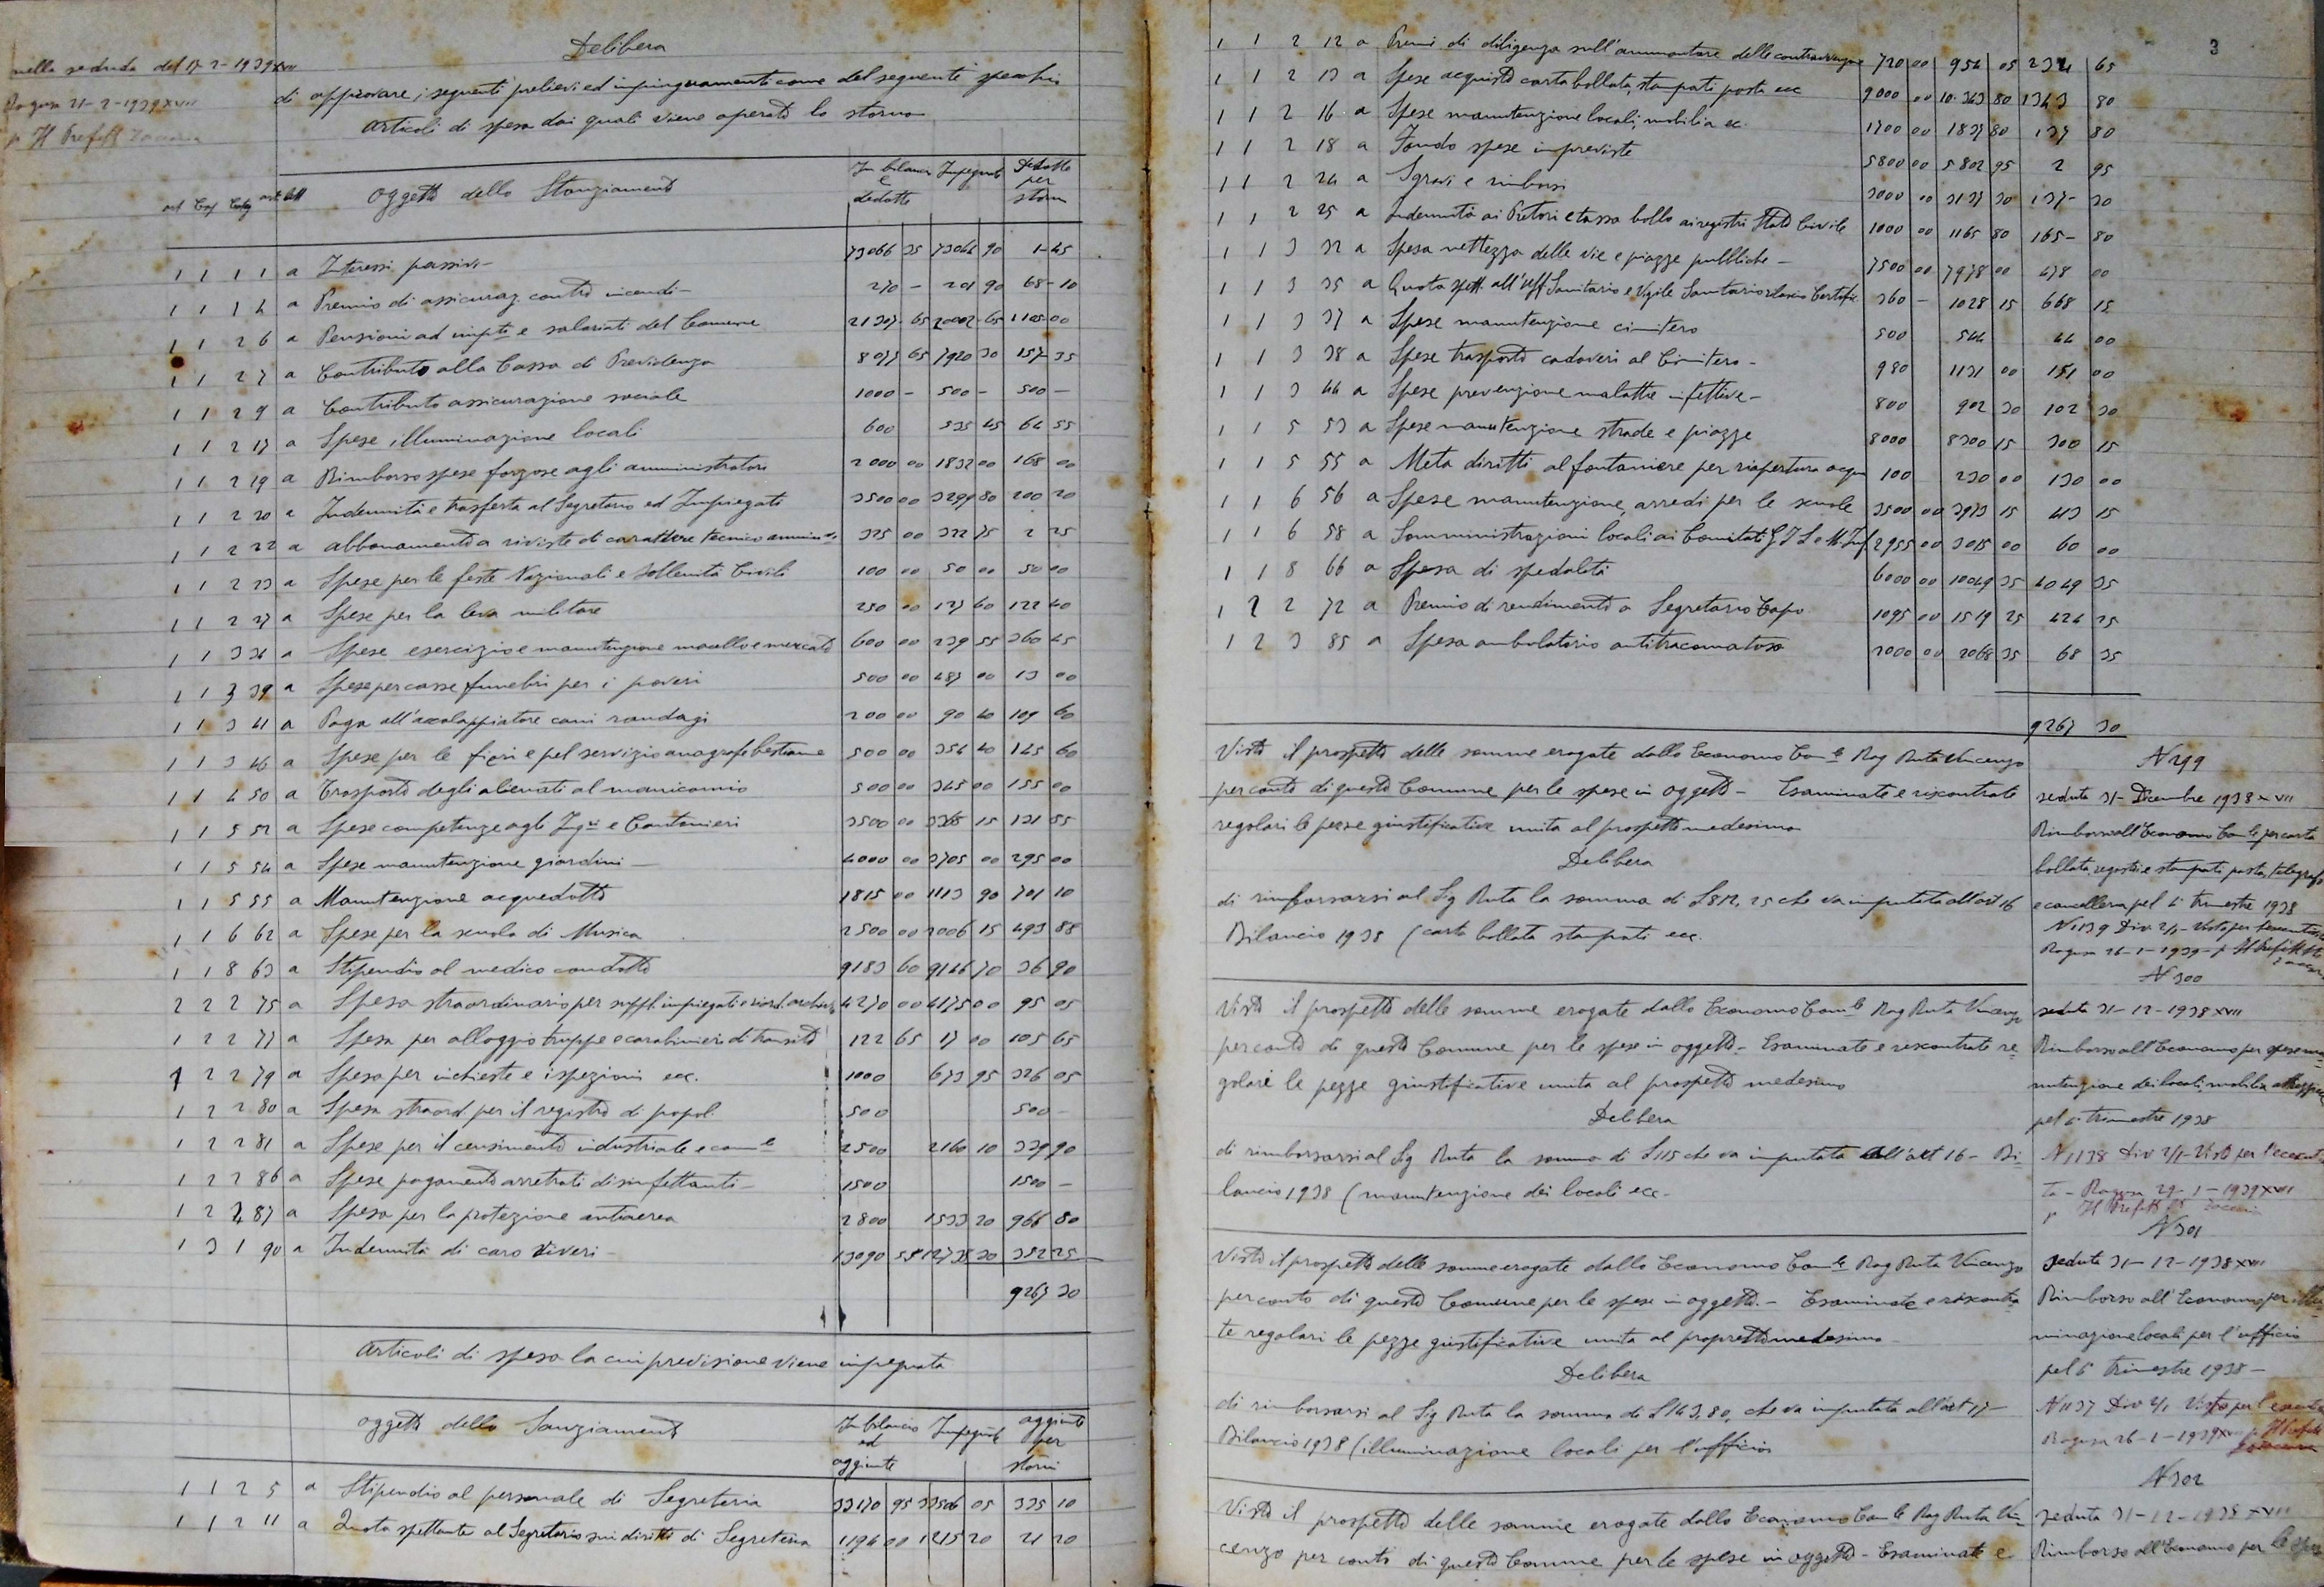 nella seduta del 17-2-1939 XVII
Ragusa 21-2-1939 XVII
p. Il Prefetto
Delibera
di approvare i seguenti prelievi ed impinguamenti come del seguente specchio
Articoli di spesa dai quali viene operato lo storno
Oggetto dello Stanziamento In bilancio e dedotto Impegnato Dedotto per storno
1 1 1 1 a Interessi passivi - 73066 35 73064 90 1-45
1 1 1 4 a Premio di assicuraz. contro incendi - 270 - 201 90 68-10
1 1 2 6 a Pensioni ad imp.ti e salariati del Comune 21307-65 20002-65 1105-00
1 1 2 7 a Contributo alla Cassa di Previdenza 8077 65 7920 30 157 35
1 1 2 9 a Contributo assicurazione sociale 1000 - 500 - 500 -
1 1 2 17 a Spese illuminazione locali 600 535 45 64 55
1 1 2 19 a Rimborso spese forzose agli amministratori 2000 00 1832 00 168 00
1 1 2 20 a Indennità e trasferta al Segretario ed Impiegati 3500 00 3299 80 200 20
1 1 2 22 a abbonamento a riviste di carattere tecnico ammin.vo 325 00 322 75 2 25
1 1 2 23 a Spese per le feste Nazionali e sollennità Civili 100 00 50 00 50 00
1 1 2 27 a Spese per la leva militare 250 00 127 60 122 40
1 1 3 34 a Spese esercizio e manutenzione macello e mercato 600 00 239 55 360 45
1 1 3 39 a Spese per casse funebri per i poveri 500 00 487 00 13 00
1 1 3 41 a Paga all'accalappiatore cani randagi 200 00 90 40 109 60
1 1 3 46 a Spese per le fiere e pel servizio anagrafe bestiame 500 00 354 40 145 60
1 1 4 50 a Trasporto degli alienati al manicomio 500 00 345 00 155 00
1 1 5 52 a Spese competenze agli Ing.ri e Cantonieri 3500 00 3368 15 131 85
1 1 5 54 a Spese manutenzione giardini - 4000 00 3705 00 295 00
1 1 5 55 a Manutenzione acquedotto 1815 00 1113 90 701 10
1 1 6 62 a Spese per la scuola di Musica 2500 00 2006 15 493 88
1 1 8 63 a Stipendio al medico condotto 9183 60 9146 70 36 90
2 2 2 75 a Spesa straordinaria per suppl. impiegati e riord. archivio 4270 00 4175 00 95 05
1 2 2 77 a Spesa per alloggio truppe e carabinieri di transito 122 65 17 00 105 65
1 2 2 79 a Spesa per inchieste e ispezioni ecc. 1000 673 95 326 05
1 2 2 80 a Spesa straord. per il registro di popol. 500 500 -
1 2 2 81 a Spese per il censimento industriale e com.le 2500 2160 10 339 90
1 2 2 86 a Spese pagamento arretrati disinfettanti - 1500 1500 -
1 2 2 87 a Spesa per la protezione antiaerea 2800 1533 20 966 80
1 3 1 90 a Indennità di caro viveri - 13090 55 12738 30 352 25
9267 30
Articoli di spesa la cui previsione viene impegnata
Oggetto dello Sanziamento In bilancio ed aggiunte Impegnato aggiunto per storni
1 1 2 5 a Stipendio al personale di Segreteria 33170 95 33506 05 335 10
1 1 2 11 a Quota spettante al Segretario sui diritti di Segreteria 1194 00 1215 20 21 20
3
1 1 2 12 a Premi di diligenza sull'ammontare delle contravvenzioni 720 00 954 05 234 65
1 1 2 13 a Spese acquisto carta bollata, stampati posta ecc 9000 00 10.343 80 1343 80
1 1 2 16 a Spese manutenzione locali, mobilia ec. 1700 00 1837 80 137 80
1 1 2 18 a Fondo spese impreviste 5800 00 5802 95 2 95
1 1 2 24 a Sgravi e rimborsi 3000 00 3137 30 137- 30
1 1 2 25 a Indennità ai Pretori e tassa bollo ai registri Stato Civile 1000 00 1165 80 165- 80
1 1 3 32 a Spesa nettezza delle vie e piazze pubbliche - 7500 00 7978 00 478 00
1 1 3 35 a Quota spett. all'Uff. Sanitario e Vigile Sanitario rilascio Certific. 360 - 1028 15 668 15
1 1 3 37 a Spese manutenzione cimitero 500 544 44 00
1 1 3 38 a Spese trasporto cadaveri al Cimitero - 980 1131 00 151 00
1 1 3 44 a Spese prevenzione malattie infettive - 800 902 30 102 30
1 1 5 53 a Spese manutenzione strade e piazze 8000 8300 15 300 15
1 1 5 55 a Metà diritti al fontaniere per riapertura acqua 100 230 00 130 00
1 1 6 56 a Spese manutenzione, arredi per le scuole 3500 00 3973 15 413 15
1 1 6 58 a Somministrazioni locali ai Comitati G I L e M. Inf. 2955 00 3015 00 60 00
1 1 8 66 a Spesa di spedalità 6000 00 10049 35 4049 35
1 2 2 72 a Premio di rendimento a Segretario Capo 1095 00 1519 25 424 25
1 2 3 85 a Spesa ambulatorio antitracomatoso 2000 00 2068 35 68 35
9267 30
Visto il prospetto delle somme erogate dallo Economo Com.le Rag Ruta Vincenzo
per conto di questo Comune per le spese in oggetto - Esaminate e riscontrate
regolari le pezze giustificative unita al prospetto medesimo
Delibera
di rimborsarsi al Sig Ruta la somma di L 812,25 che va imputata all'art 16
Bilancio 1938 (carta bollata stampati ecc.
N 299
seduta 31- Dicembre 1938 XVII
Rimborso all'Economo Com.le per carta
bollata, registri e stampati posta, telegrafo
e cancelleria pel 4° trimestre 1938
N 1139 Div 2/1 - Visto per l'esecutorietà
Ragusa 26-1-1939- p Il Prefetto
Visto il prospetto delle somme erogate dallo Economo Com.le Rag Ruta Vincenzo
per conto di questo Comune per le spese in oggetto - Esaminate e rescontrate re-
golari le pezze giustificative unita al prospetto medesimo
Delibera
di rimborsarsi al Sig Ruta la somma di L 115 che va imputata all'art 16 - Bi-
lancio 1938 (manutenzione dei locali ecc.
N 300
seduta 31-12-1938 XVII
Rimborso all'Economo per spese ma-
nutenzione dei locali, mobilia
pel 4° trimestre 1938
N 1138 Div 2/1 - Visto per l'esecuti
ta - Ragusa 29-1-1939 XVII
p Il Prefetto
Visto il prospetto delle somme erogate dallo Economo Com.le Rag Ruta Vincenzo
per conto di questo Comune per le spese in oggetto. - Esaminate e riscontra-
te regolari le pezze giustificative unita al prospetto medesimo
Delibera
di rimborsarsi al Sig Ruta la somma di L 143,80, che va imputata all'art 17-
Bilancio 1938 (illuminazione locali per l'ufficio
N 301
seduta 31-12-1938 XVII
Rimborso all'Economo per illu-
minazione locali per l'ufficio
pel 4° trimestre 1938 -
N 1137 Div 2/1 Visto per l'esecut
Ragusa 26-1-1939 XVII p Il Prefetto
Visto il prospetto delle somme erogate dallo Economo Com.le Rag Ruta Vin-
cenzo per conto di questo Comune per le spese in oggetto - Esaminate e
N 302
seduta 31-12-1938 XVII
Rimborso all'Economo per le spese